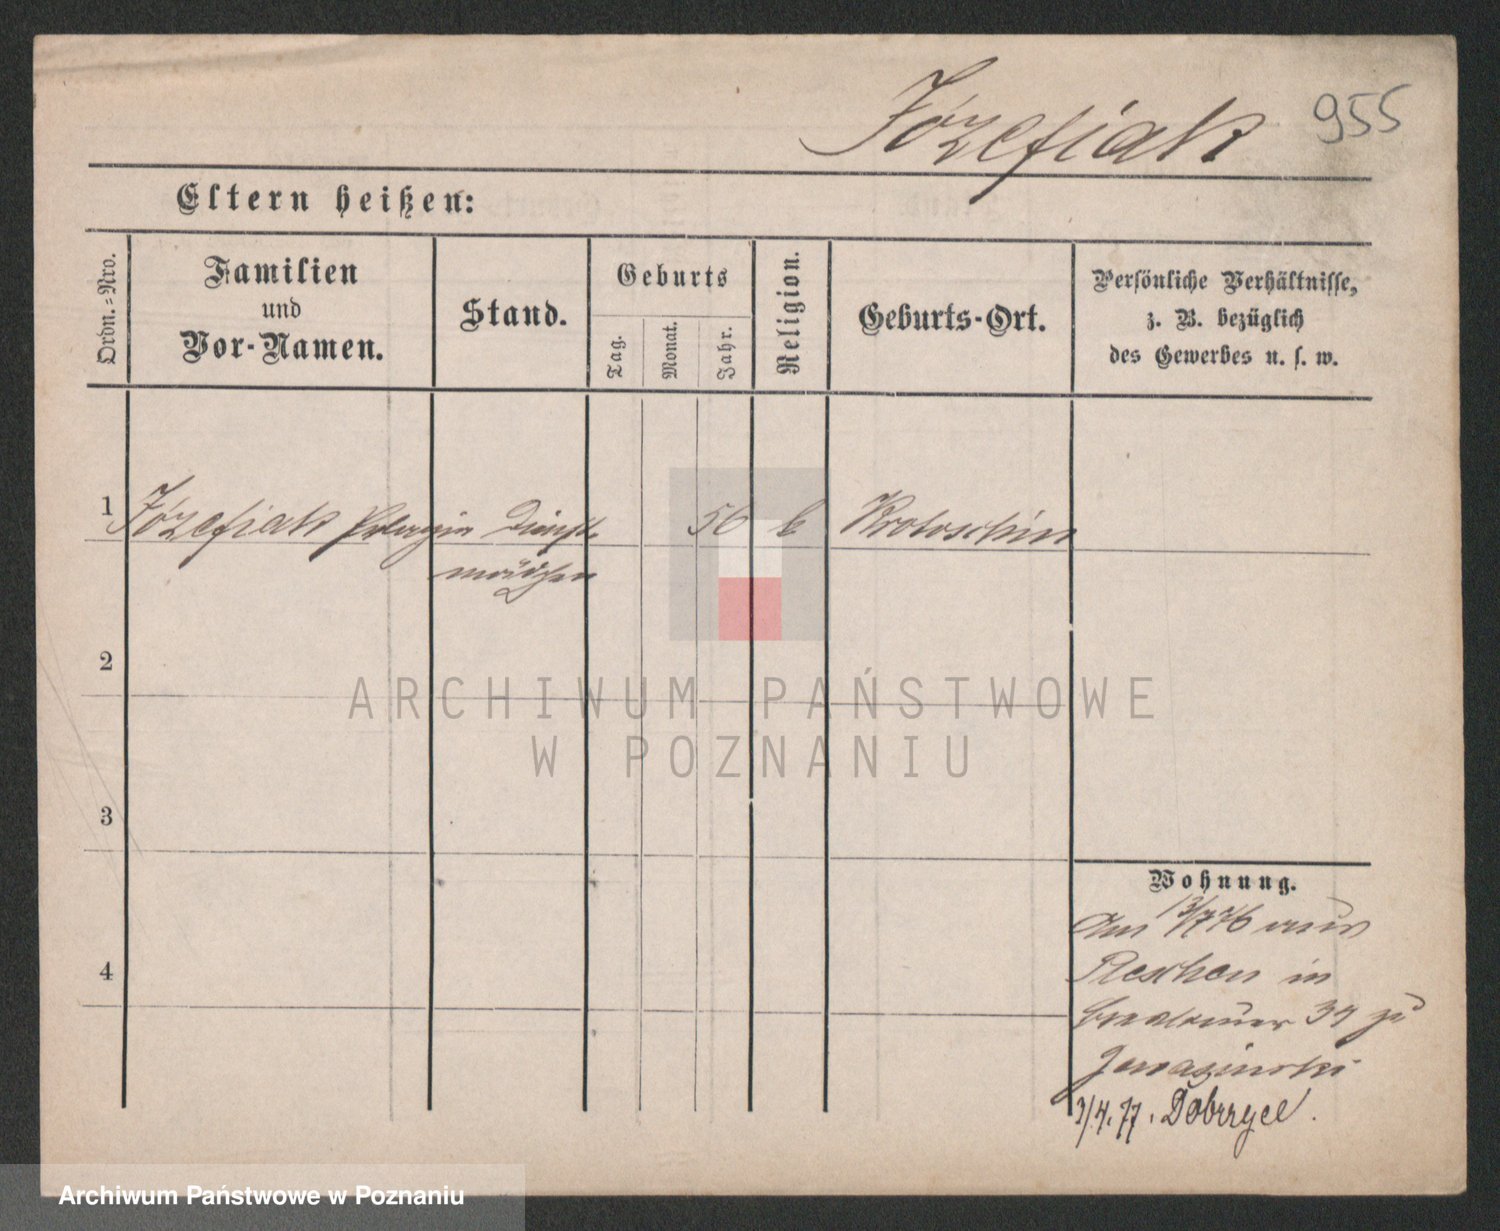 Józefiak 955
Eltern heißen:
Ordn.=Nro.
Familien
und
Vor-Namen.
Stand.
Geburts
Tag.
Monat.
Jahr.
Religion.
Geburts-Ort.
Persönliche Verhältnisse,
z. B. bezüglich
des Gewerbes u. s. w.
1 Józefiak Pelagia Dienst- 56 k Krotoschin
mädchen
2
3
4
Wohnung.
Am 13/7 76 aus
Pleschen in
Breslauer 34 zu
3/4. 77. Dobrzyce.
ARCHIWUM PAŃSTWOWE
W POZNANIU
Archiwum Państwowe w Poznaniu